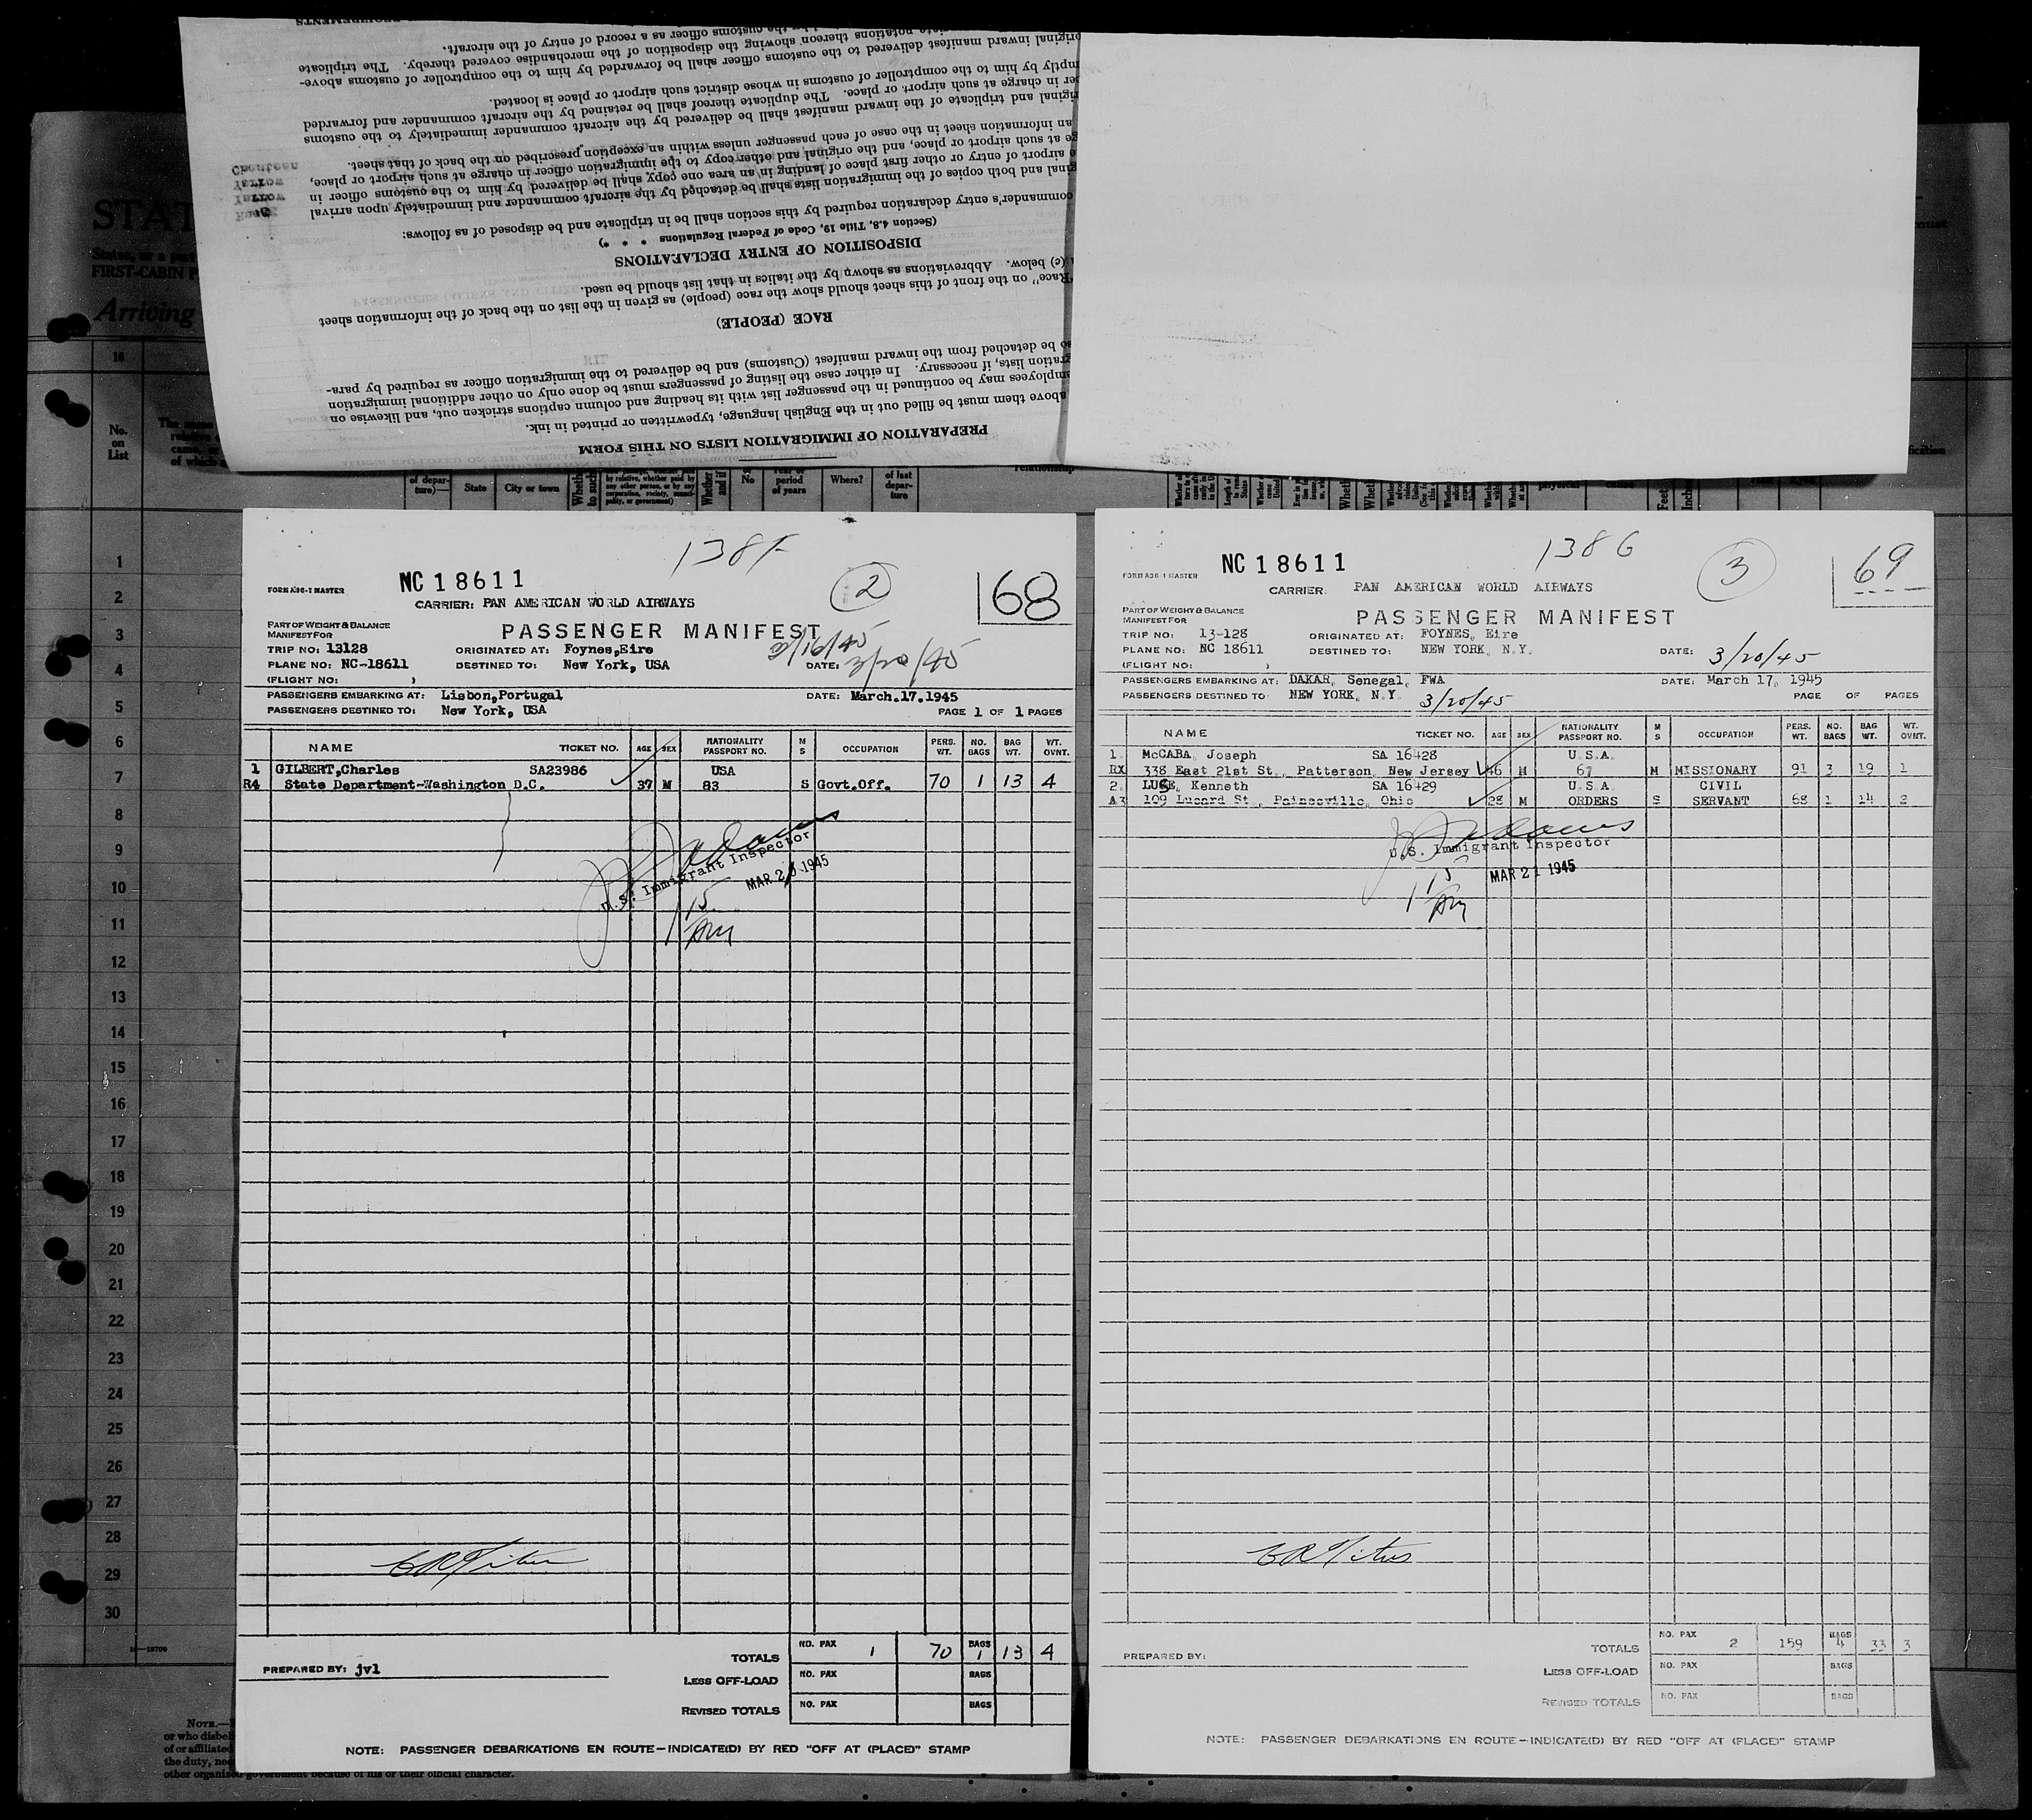 original inward manifest delivered to the customs officer shall be forwarded by him to the comptroller of customs above-
notations thereon showing the disposition of the merchandise covered thereby. The triplicate
the customs officer as a record of entry of the aircraft.
PREPARATION OF IMMIGRATION LISTS ON THIS FORM
above them must be filled out in the English language, typewritten or printed in ink.
employees may be continued in the passenger list with its heading and column captions stricken out, and likewise on
gration lists, if necessary. In either case the listing of passengers must be done only on other additional immigration
be detached from the inward manifest (Customs) and be delivered to the immigration officer as required by para-
RACE (PEOPLE)
"Race" on the front of this sheet should show the race (people) as given in the list on the back of the information sheet
(c) below. Abbreviations as shown by the italics in that list should be used.
DISPOSITION OF ENTRY DECLARATIONS
(Section 4.8, Title 19, Code of Federal Regulations * * *)
commander's entry declaration required by this section shall be in triplicate and be disposed of as follows:
ginal and both copies of the immigration lists shall be detached by the aircraft commander and immediately upon arrival
airport of entry or other first place of landing in an area one copy shall be delivered by him to the customs officer in
ge at such airport or place, and the original and other copy to the immigration officer in charge at such airport or place,
an information sheet in the case of each passenger unless within an exception prescribed on the back of that sheet.
iginal and triplicate of the inward manifest shall be delivered by the aircraft commander immediately to the customs
er in charge at such airport or place. The duplicate thereof shall be retained by the aircraft commander and forwarded
mptly by him to the comptroller of customs in whose district such airport or place is located.
STAT
States, or a port
FIRST-CABIN P
Arriving
16
No. on List
of depar-ture)—
State
City or town
No
Year or period of years
Where?
of last depar-ture
relationship
1
2
3
4
5
6
7
8
9
10
11
12
13
14
15
16
17
18
19
20
21
22
23
24
25
26
27
28
29
30
16—18700
138F
NC 18611
2
168
FORM A36-1 MASTER
CARRIER: PAN AMERICAN WORLD AIRWAYS
PART OF WEIGHT & BALANCE
MANIFEST FOR
PASSENGER MANIFEST
3/16/45
TRIP NO: 13128
ORIGINATED AT: Foynes,Eire
PLANE NO: NC-18611
DESTINED TO: New York, USA
DATE: 3/20/45
(FLIGHT NO: )
PASSENGERS EMBARKING AT: Lisbon,Portugal
DATE: March.17.1945
PASSENGERS DESTINED TO: New York, USA
PAGE 1 OF 1 PAGES
NAME TICKET NO. AGE SEX NATIONALITY PASSPORT NO. M S OCCUPATION PERS. WT. NO. BAGS BAG WT. WT. OVNT.
1 GILBERT,Charles SA23986 USA
R4 State Department-Washington D.C. 37 M 83 S Govt.Off. 70 1 13 4
U.S. Immigrant Inspector
MAR 20 1945
1 15
AM
TOTALS NO. PAX 1 70 BAGS 1 13 4
PREPARED BY: jvl
LESS OFF-LOAD NO. PAX BAGS
REVISED TOTALS NO. PAX BAGS
NOTE: PASSENGER DEBARKATIONS EN ROUTE—INDICATE(D) BY RED "OFF AT (PLACE)" STAMP
138G
NC 18611
3
69
FORM A36-1 MASTER
CARRIER: PAN AMERICAN WORLD AIRWAYS
PART OF WEIGHT & BALANCE
MANIFEST FOR
PASSENGER MANIFEST
TRIP NO: 13-128
ORIGINATED AT: FOYNES, Eire
PLANE NO: NC 18611
DESTINED TO: NEW YORK, N.Y.
DATE: 3/20/45
(FLIGHT NO: )
PASSENGERS EMBARKING AT: DAKAR, Senegal, FWA
DATE: March 17, 1945
PASSENGERS DESTINED TO: NEW YORK, N.Y. 3/20/45
PAGE OF PAGES
NAME TICKET NO. AGE SEX NATIONALITY PASSPORT NO. M S OCCUPATION PERS. WT. NO. BAGS BAG WT. WT. OVNT.
1. McCABA, Joseph SA 16428 U.S.A.
RX 338 East 21st St., Patterson, New Jersey 46 M 67 M MISSIONARY 91 3 19 1
2. Kenneth SA 16429 U.S.A. CIVIL
A3 109 Lusard St., Painesville, Ohio 28 M ORDERS S SERVANT 68 1 14 2
U.S. Immigrant Inspector
MAR 21 1945
1 15
AM
C R Titus
TOTALS NO. PAX 2 159 BAGS 4 33 3
PREPARED BY:
LESS OFF-LOAD NO. PAX BAGS
REVISED TOTALS NO. PAX BAGS
NOTE: PASSENGER DEBARKATIONS EN ROUTE—INDICATE(D) BY RED "OFF AT (PLACE)" STAMP
NOTE.—
or who disbel
of or affiliated
the duty, nec
other organized government because of his or their official character.